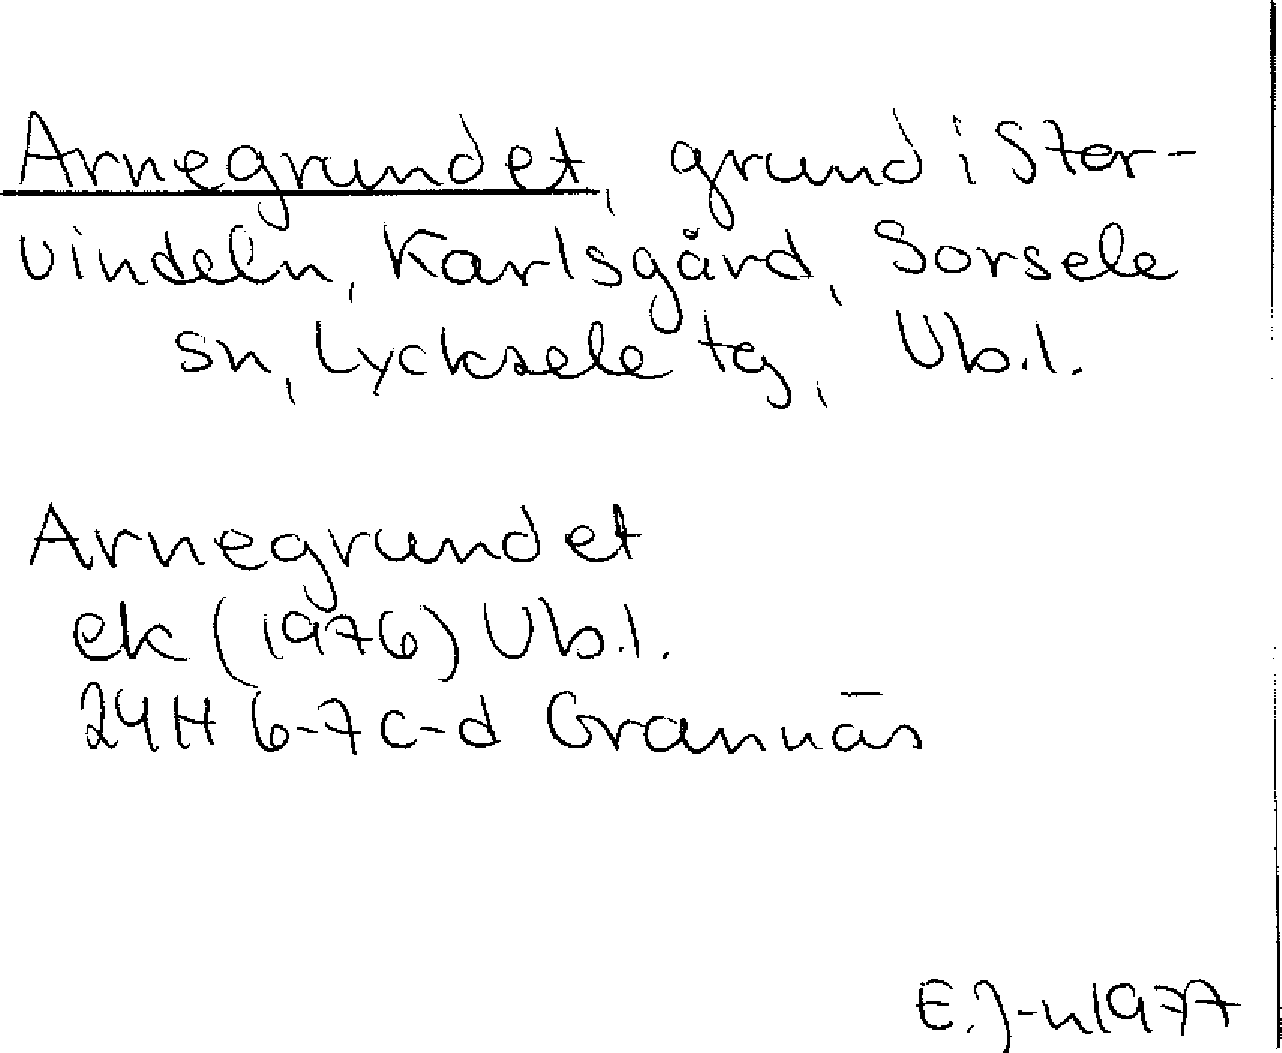 Arnegrundet, grund i Stor-
vindeln, Karlsgård, Sorsele
sn, Lycksele tg, Vb.l.
Arnegrundet
ek (1976) Vb.l.
24H 6-7 c-d Grannäs
E.J-n 1977